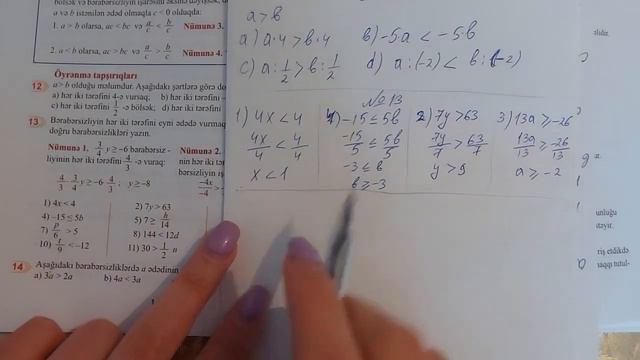 bölsək və bərabərsizliyin işarəsini
a və b istənilən ədəd olmaqla c < 0 olduqda:
1. a > b olarsa, ac < bc və a/c < b/c Nümunə 3.
2. a < b olarsa, ac > bc və a/c > b/c Nümunə 4.
Öyrənmə tapşırıqları
12 a > b olduğu məlumdur. Aşağıdakı şərtlərə görə
a) hər iki tərəfini 4-ə vursaq; b) hər iki tərəfini
c) hər iki tərəfini 1/2 -ə bölsək; d) hər iki tərəfini
13 Bərabərsizliyin hər iki tərəfini eyni ədədə vurmaqla
doğru bərabərsizlikləri yazın.
Nümunə 1. 3/4 y ≥ -6 bərabərsiz- Nümunə 2.
liyinin hər iki tərəfini 4/3 -ə vuraq: nin hər iki
4/3 · 3/4 y ≥ -6 · 4/3 ; y ≥ -8
bərabərsizliyin
-4x/-4
1) 4x < 4 2) 7y > 63
4) -15 ≤ 5b 5) 7 ≥ h/14
7) p/6 > -5 8) 144 < 12d
10) t/9 < -12 11) 30 > 1/2 n
14 Aşağıdakı bərabərsizliklərdə a ədədinin
a) 3a > 2a b) 4a < 3a
a > b
a) a·4 > b·4 b) -5·a < -5·b
c) a : 1/2 > b : 1/2 d) a : (-2) < b : (-2)
№13
1) 4x < 4 4) -15 ≤ 5b 2) 7y > 63 3) 13a ≥ -26
4x/4 < 4/4 -15/5 ≤ 5b/5 7y/7 > 63/7 13a/13 ≥ -26/13
x < 1 -3 ≤ b y > 9 a ≥ -2
b ≥ -3
unluğu
riş etdikdə